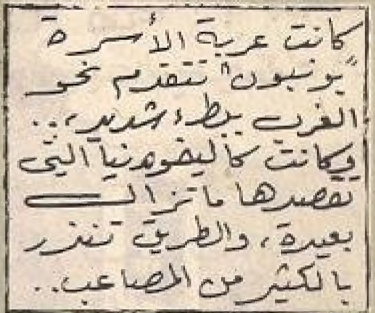 كانت عربة الأسرة
"يونيون" تتقدم نحو
الغرب ببطء شديد،..
وكانت كاليفورنيا التي
تقصدها ما تزال
بعيدة، والطريق تنذر
بالكثير من المصاعب..